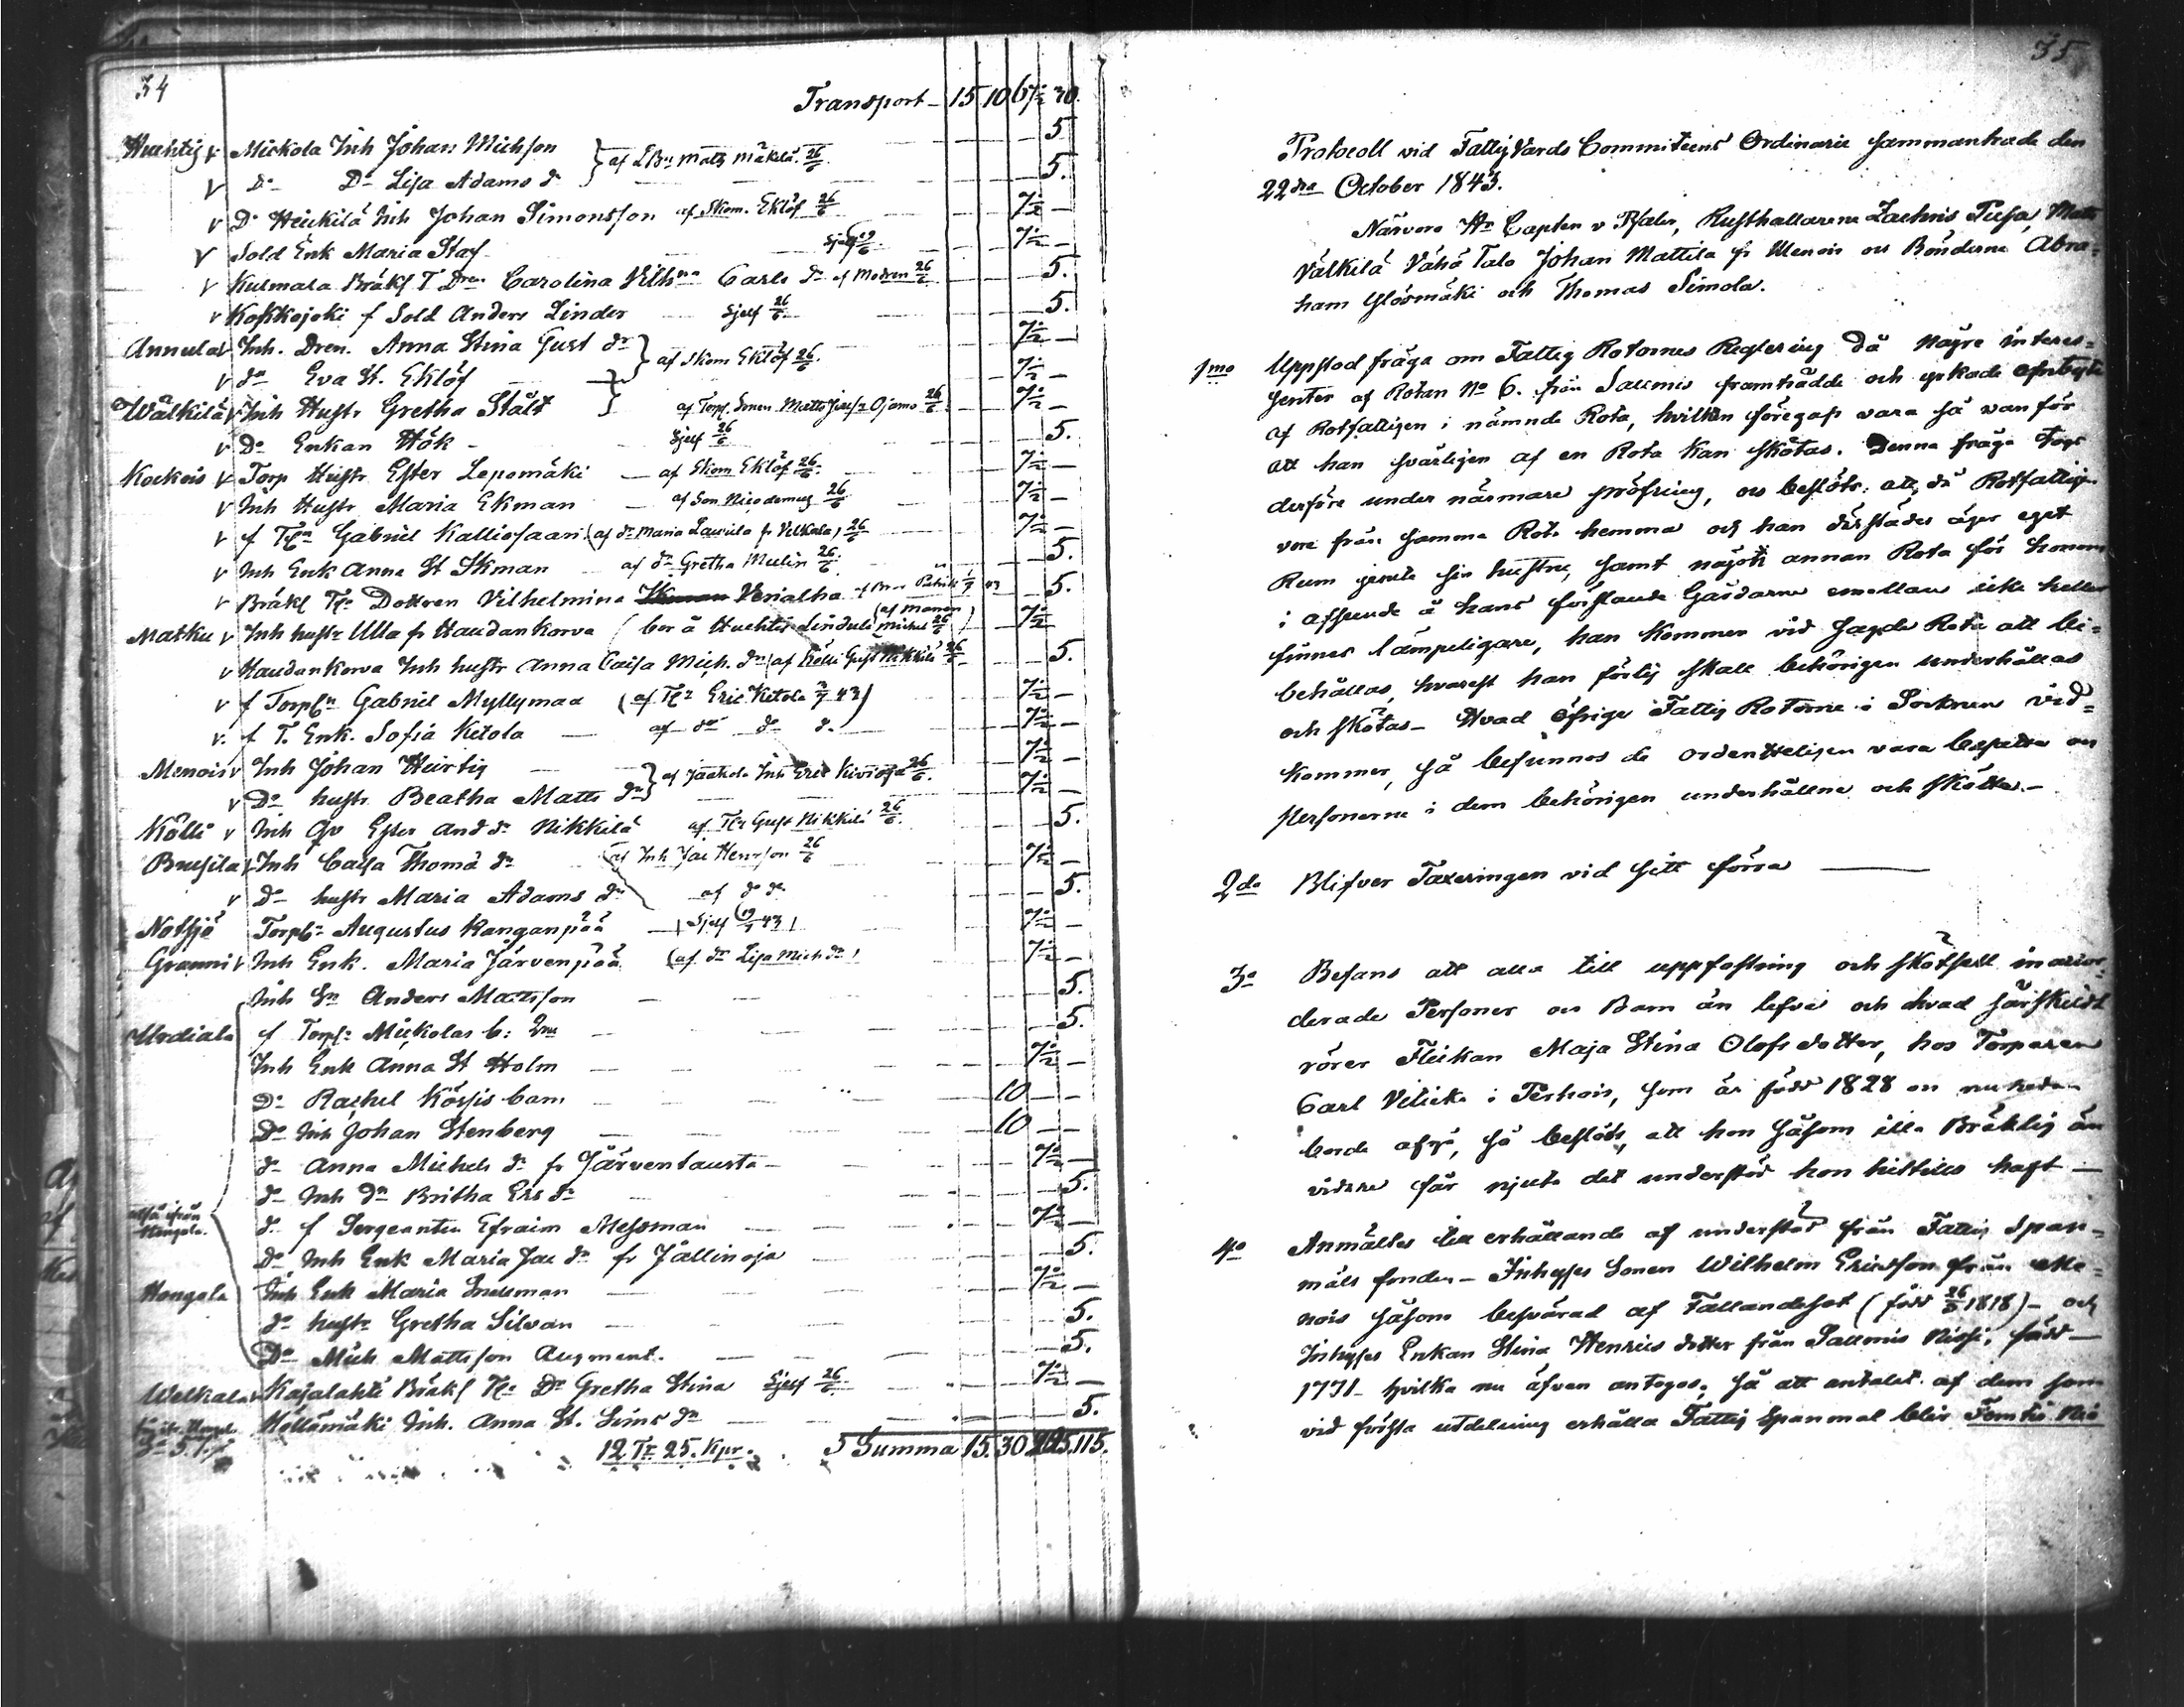 34
Transport - 15 10 67½ 70.
Huhtis v Mickola Inh Johan Michson } af LBn Matts Mäkilä. 26/6 5
v Do Do Lisa Adams dr 5.
v Do Heickilä Inh Johan Simonsson af Skom. Eklöf 26/6 7½ -
v Sold Enk Maria Staf Sjelf 19/6 7½ -
v Kulmala Bräkl T Dren Carolina Vilhna Carls dr af Modren 26/6 5.
v Koskojoki f Sold Anders Linder Sjelf 26/6 5.
Annula v Inh. Dren. Anna Stina Gust dr } af Skom Eklöf 26/6. 7½ -
v do Eva St. Eklöf 7½ -
Wälkilä v Inh Hustr Gretha Stålt af Torp. Sonen Matts Ojamo 26/6 7½ -
v Do Enkan Hök - Sjelf 26/6 5.
Kockois v Torp Hustr Ester Lepomäki - af Skom Eklöf 26/6. 7½ -
v Inh Hustr Maria Ekman - af Son Nicodemus 26/6 7½ -
v f Tpn Gabriel Kalliosaari (af dr Maria fr Velkala) 26/6 7½ -
v Inh Enk Anna St Ekman af dr Gretha Mulin 26/6. 5.
v Bräkl Tp Dottren Vilhelmina Venalha 5.
Matku v Inh hustr Ulla fr Haudankorva (bor å Huhtis Lindula (af Manen Michel 26/6) 7½
v Haudankorva Inh hustr Anna Caisa Mich. dr (af Kölli Gust Nikkilä 26/6 5.
v f Torpn Gabriel Myllymaa (af Tpr Eric Ketola 3/7 43) 7½ -
v. f T. Enk. Sofia Ketola - af do do d. 7½ -
Menois v Inh Johan Hurtig } af Jaakola Inh Eric Kivioja 26/6. 7½ -
v Do hustr Beatha Matts dr 7½ -
Kölli v Inh Qv Ester And dr Nikkilä af Tpr Gust Nikkilä 26/6. 5.
Brusila v Inh Caisa Thomä dr (af Inh Jac Henrsson 26/6 7½ -
v Do hustr Maria Adams dr af do do 5.
Notsjö Torpr Augustus Kanganpää - (Sjelf 19/7 43) 7½ -
Granni v Inh Enk. Maria Järvenpää (af dr Lisa Mich dr) 7½ -
Inh Gn Anders Mattsson - 5.
Urdiala f Torpr Mickolas b: 5.
Inh Enk Anna St Holm - 7½ -
Do Rachel Körsis barn 10 - -
Do Inh Johan Stenberg 10 - -
do Anna Michels dr fr Järventausta - 7½ -
do Inh Dn Britha Ers dr 5.
do f Sergeanten Efraim Messman 7½ -
Do Inh Enk Maria Jac dr fr Jällinoja 5.
Hongola Inh Enk Maria 7½ -
do hustr Gretha Silvan 5.
Do Mich Mattsson Augment. 5.
Welkala v Kajalahti Bräkl Tp Dr Gretha Stina Sjelf 26/6 7½ -
Höllämäki Inh. Anna St. Sims dr 5.
12 Tr 25. Kpr. Summa 15. 30 115.
35
Protocoll vid FattigVards Committeens Ordinarie sammanträde den
22dra October 1843.
Närvaro Hr Capten v Pfaler, Rusthållarene Zachris Tusa, Matts
Välkilä Vähä Talo Johan Mattila fr Menois och Bönderna Abra=
ham Ylösmäki och Thomas Simola.
1mo Uppstod fråga om Fattig Rotornes Reglering då någre interes=
senter af Rotan No 6. från Salmis framträdde och yrkade
af Rotfattigen i nämnde Rota, hvilken föregafs vara så vanför
att han svårligen af en Rota kan skötas. Denna fråga togs
derföre under närmare pröfning, och beslöts: att, då Rotfattigen
vore från samma Rota hemma och han därstädes äger eget
Rum jemte sin hustru, samt någon annan Rota för honom
i afseende å hans förstånde Gårdarne emellan icke heller
finnes lämpeligare, han kommer vid sagde Rota att bi=
behållas, hvarest han förty skall behörigen underhållas
och skötas - Hvad öfrige Fattig Rotorne i Socknen vid=
kommer, så befunnos de ordentligen vara besatta och
Personerne i dem behörigen underhållne och skötte. -
2do Blifver Taxeringen vid sitt förra
3o Befans att alla till uppfostring och skötsell inackor=
derade Personer och Barn än lefva och hvad särskildt
rörer Flickan Maja Stina Olofs dotter, hos Torparen
Carl Velick i Perhois, som är född 1828 och
, så beslöts, att hon såsom illa Bräklig än
vidare får njuta det understöd hon hittills haft -
4o Anmältes till erhållande af understöd från Fattig Span=
måls fonden - Inhyses Sonen Wilhelm Ericsson från Me=
nois såsom besvärad af Fallandesot (född 26/5 1818) - och
Inhyses Enkan Stina Henrics dotter från Salmis Nissi, född -
1771 - hvilka nu äfven antogos, så att antalet af dem som
vid första utdelning erhålla Fattig Spanmål blir Femtio Nio